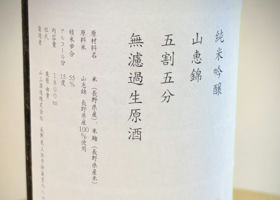 純米吟醸
山恵錦
五割五分
無濾過生原酒
原材料名 米(長野県産)、米麹(長野県産米)
原料米 山恵錦 長野県産100%使用
精米歩合 55%
アルコール分 15度
内容量 1800ml
杜氏
製造者